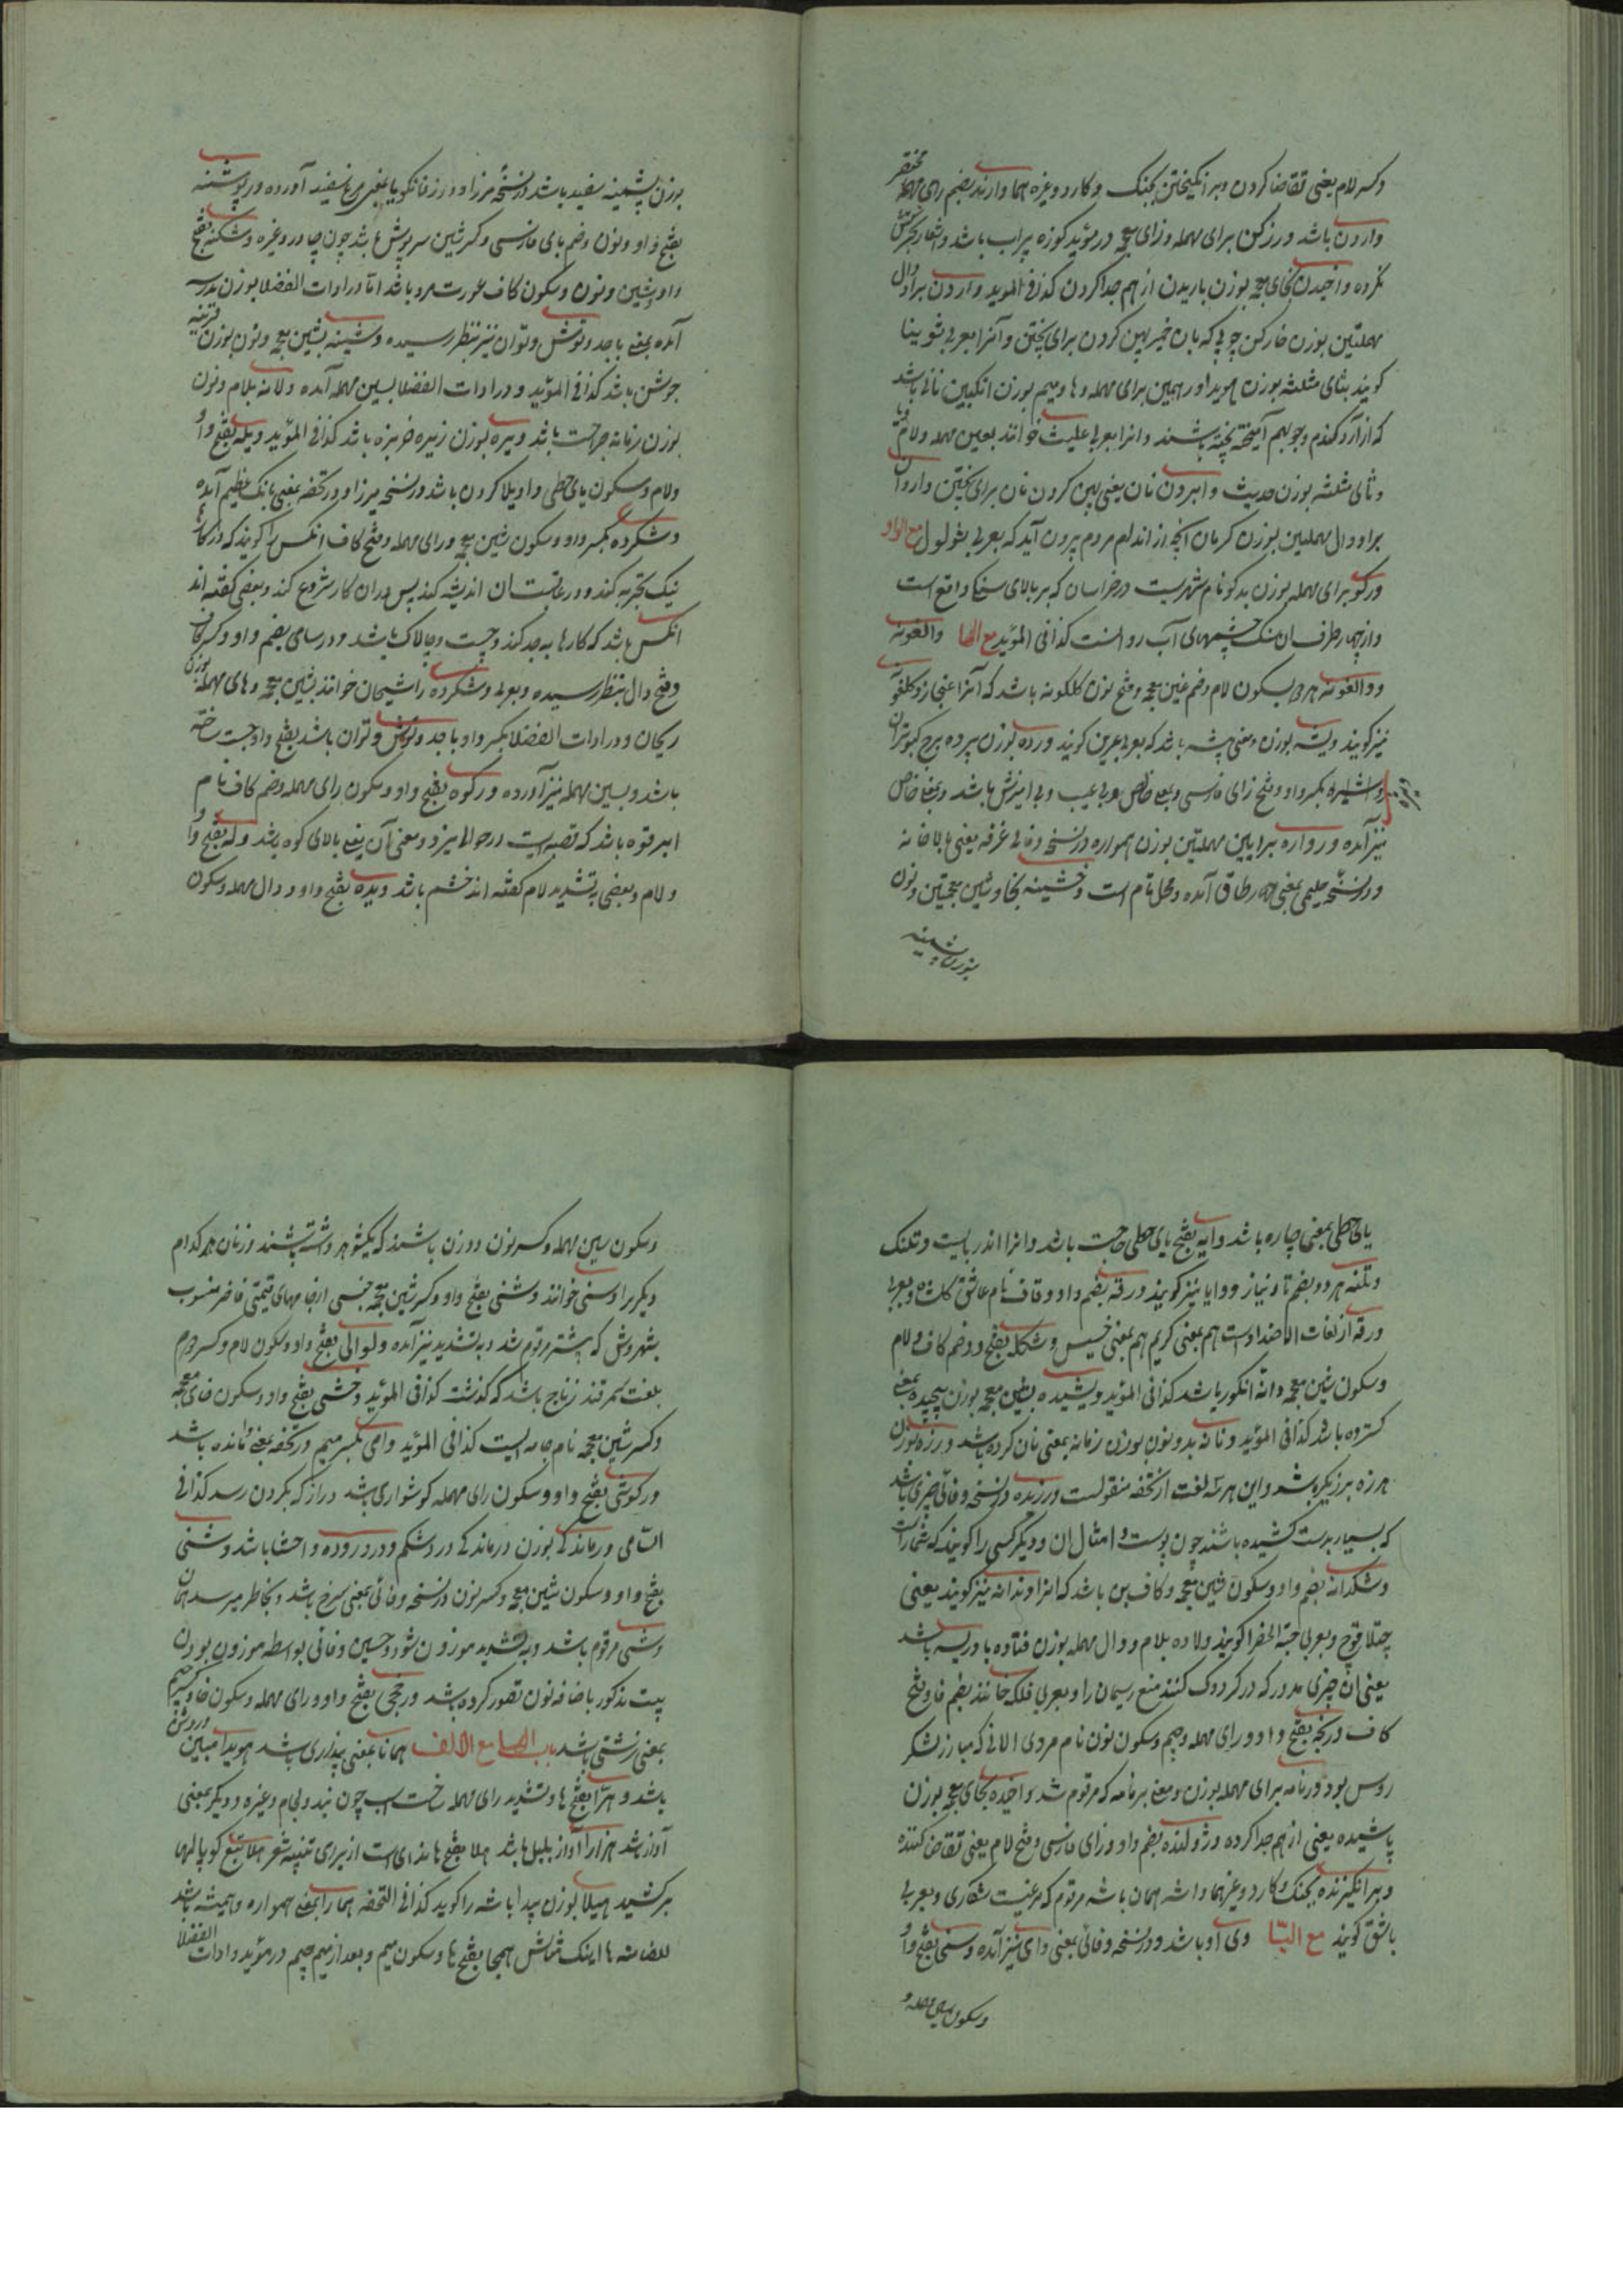 وکسر لام یعنی تقاضا کردن وبر انگیختن بجنک وکارد وغیره هما وارند بضم رای مهمله مختصر
واردن باشد ورزکن برای مهمله وزای معجمه در مؤید کوزه پراب باشد
نکرده واخیدن بخای معجمه بوزن باریدن از هم جدا کردن کذا فی المؤید واردن برا ودال
مهملتین بوزن خارکن چوبی که بان خمیر پهن کردن برای پختن وآنرا بعربی شوینا
کویند بثای مثلثه بوزن هویدا ورهمین برای مهمله وها ومیم بوزن انکبین نانی باشد
که از آرد کندم وجو بهم آمیخته پخته باشند وانرا بعربی علیث خوانند بعین مهمله ولام
وثای مثلثه بوزن حدیث وابردن نان یعنی پهن کردن نان برای پختن واردان
برا ودال مهملتین بوزن کرمان آنچه از اندام مردم بیرون آید که بعربی ثولول مع الواو
ورکو برای مهمله بوزن بدکو نام شهریست در خراسان که بر بالای سنک واقع است
واز چهار طرف ان سنک چشمهای آب روانست کذا فی المؤید مع الها والغونه
ووالغونه هردو بسکون لام وضم غین معجمه وفتح نون کلکونه باشد که آنرا غنجار وکلغو
نیز کویند ویشه بوزن ومعنی پیشه باشد که بعربی عرین کویند ورده بوزن پرده برج کبوتران
بکسر واو وفتح زای فارسی وبمعنی خالص وبی عیب وبی امیزش باشد وبمعنی خاص
نیز آمده ورواره برایین مهملتین بوزن همواره در نسخه وفائی غرفه یعنی بالا خانه
ودر نسخه حلیمی بمعنی چهار طاق آمده ومحل تام است وخشینه بخا وشین معجمتین ونون
بوزن پشمینه
بوزن پشمینه سفید باشد در نسخه میرزا ودر زفانکویا بمعنی مرغ سفید آورده ورپوشنه
بفتح واو ونون وضم بای فارسی وکسر شین سرپوش باشد چون چادر وغیره وشکنه بفتح
واو وشین ونون وسکون کاف عورت مرد باشد اما در ادات الفضلا بوزن مدرسه
آمده بمعنی با جد وتوش وتوان نیز بنظر رسیده وشینه بشین معجمه ونون بوزن قرینه
جوشن باشد کذا فی المؤید ودر ادات الفضلا بسین مهمله آمده ولانه بلام ونون
بوزن زمانه جراحت باشد ویره بوزن زیره خربزه باشد کذا فی المؤید ویله بفتح واو
ولام وسکون یای حطی واویلا کردن باشد در نسخه میرزا ودر تحفه بمعنی بانک عظیم آمده
وشکرده بکسر واو وسکون شین معجمه ورای مهمله وفتح کاف انکس را کویند که در کار
نیک تجربه کند ودر عاقبت ان اندیشه کند پس دران کار شروع کند وبعضی کفته اند
انکس باشد که کارها بجد کند وچست وچالاک باشد ودر سامی بضم واو وکسر کاف
وفتح دال بنظر رسیده وبعربی وشکرده را شیحان خوانند بشین معجمه وحای مهمله بوزن
ریحان ودر ادات الفضلا بکسر واو با جد وتوش وتوان باشد بفتح واو چست ساخته
باشد وبسین مهمله نیز آورده ورکوه بفتح واو وسکون رای مهمله وضم کاف نام
ابرقوه باشد که قصبه ایست در حوالی یزد ومعنی آن یعنی بالای کوه باشد وله بفتح واو
ولام وبعضی به تشدید لام کفته اند خشم باشد ویده بفتح واو ودال مهمله وسکون
یای حطی بمعنی چاره باشد وایه بفتح یای حطی حاجت باشد وانرا اندر بایست وتلنک
وتلنه هردو بضم تا ونیاز ووایا نیز کویند ورقه بضم واو وقاف نام عاشق کلشاه وبعربی
ورقه از لغات الاضداد است هم بمعنی کریم هم بمعنی خسیس وشکله بفتح ووضم کاف ولام
وسکون شین معجمه دانه انکور باشد کذا فی المؤید ویشیده بشین معجمه بوزن پیچیده بمعنی
کسترده باشد کذا فی المؤید ونانه بدو نون بوزن زمانه بمعنی نان کرده باشد ورزه بوزن
هرزه برزیکر باشد واین هر سه لغت از تحفه منقولست ورزیده در نسخه وفائی چیزی باشد
که بسیار بدست کشیده باشند چون پوست وامثال ان ودیکر کسی را کویند که
وشکدانه بضم واو وسکون شین معجمه وکاف بن باشد که انرا وندانه نیز کویند یعنی
چتلاقوج وبعربی حبة الخضرا کویند ولاده بلام ودال مهمله بوزن فتاده بادریسه باشد
یعنی ان چیزی مدور که در کردوک کنند منع ریسمان را وبعربی فلکه خوانند بضم فا وفتح
کاف ورنجه بفتح واو ورای مهمله وجیم وسکون نون نام مردی الانی که مبارز لشکر
روس بود ورنامه برای مهمله بوزن ومعنی برنامه که مرقوم شد واخیده بخای معجمه بوزن
پاشیده یعنی از هم جدا کرده وژولنده بضم واو وزای فارسی وفتح لام یعنی تقاضا کننده
وبر انکیزنده بجنک وکارد وغیرهما واشه همان باشه مرقوم که مرغیست شکاری وبعربی
باشق کویند مع الیا وی او باشد ودر نسخه وفائی بمعنی وای نیز آمده وسنی بفتح واو
وسکون سین مهمله و
وسکون سین مهمله وکسر نون دو زن باشند که یکشوهر داشته باشند وزنان هر کدام
دیکریرا وسنی خوانند وشنی بفتح واو وکسر شین معجمه جنسی از جامهای قیمتی فاخر منسوب
بشهر وش که پیشتر مرقوم شد وبه تشدید نیز آمده ولوالی بفتح واو وسکون لام وکسر دوم
بلغت سمرقند زناج باشد که کذشت کذا فی المؤید وخشی بفتح واو وسکون خای معجمه
وکسر شین معجمه نام جامه ایست کذا فی المؤید وامی بکسر میم در تحفه بمعنی وامانده باشد
ورکوشی بفتح واو وسکون رای مهمله کوشواری باشد دراز که بکردن رسد کذا فی
السامی ورماندکی بوزن درماندکی درد شکم ودرد روده واحشا باشد وشنی
بفتح واو وسکون شین معجمه وکسر نون در نسخه وفائی بمعنی سرخ باشد وبخاطر میرسد همان
وشی مرقوم باشد وبه تشدید موزون شود وحسین وفائی بواسطه موزون بودن
بیت مذکور باضافه نون تصور کرده باشد ورخجی بفتح واو ورای مهمله وسکون خا وکسر جیم
بمعنی زشتی باشد باب الها مع الالف همانا بمعنی پنداری باشد هویدا مبین وروشن
باشد وهرا بفتح ها وتشدید رای مهمله رخت اسب چون زین ولجام وغیره ودیکر بمعنی
آواز باشد هزار آواز بلبل باشد هلا بفتح ها ندای است از برای تنبیه شعر هلا تیغ کوپالها
برکشید هیلا بوزن پیدا باشه را کوید کذا فی التحفه همارا بمعنی همواره وهمیشه باشد
ها اینک مثالش همجا بفتح ها وسکون میم وبعد از میم جیم در مؤید وادات الفضلا